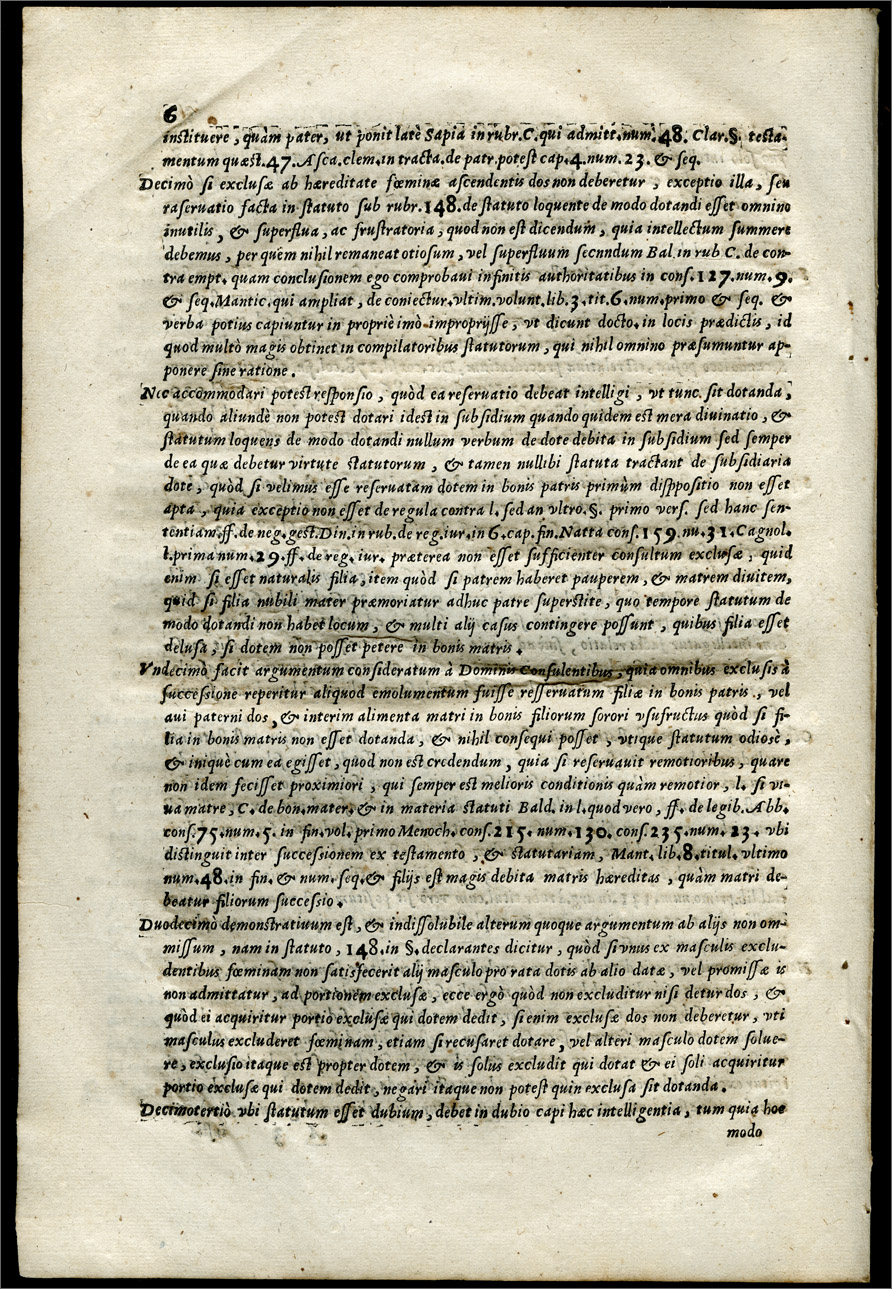 6
instituere, quàm pater, ut ponit latè Sapia in rubr.C.qui admitt.num.48. Clar.§. testa-
mentum quæst.47. Asca.clem.in tracta.de patr.potest cap.4.num.23. & seq.
Decimò si exclusæ ab hæreditate fœminæ ascendentis dos non deberetur, exceptio illa, seu
raseruatio facta in statuto sub rubr.148.de statuto loquente de modo dotandi esset omnino
inutilis, & superflua, ac frustratoria, quod non est dicendum, quia intellectum summere
debemus, per quem nihil remaneat otiosum, vel superfluum secnndum Bal.in rub C. de con-
tra empt. quam conclusionem ego comprobaui infinitis authoritatibus in cons.127.num.9.
& seq.Mantic.qui ampliat, de coniectur.vltim.volunt.lib.3.tit.6.num.primo & seq. &
verba potius capiuntur in propriè imò impropriĳsse, vt dicunt docto.in locis prædictis, id
quod multò magis obtinet in compilatoribus statutorum, qui nihil omnino præsumuntur ap-
ponere sine ratione.
Nec accommodari potest responsio, quòd ea reseruatio debeat intelligi, vt tunc sit dotanda,
quando aliundè non potest dotari idest in subsidium quando quidem est mera diuinatio, &
statutum loquens de modo dotandi nullum verbum de dote debita in subsidium sed semper
de ea quæ debetur virtute statutorum, & tamen nullibi statuta tractant de subsidiaria
dote, quòd si velimus esse reseruatam dotem in bonis patris primùm dispositio non esset
apta, quia exceptio non esset de regula contra l. sed an vltro.§. primo vers. sed hanc sen-
tentiam.ff.de neg.gest.Din.in rub.de reg.iur.in 6.cap.fin.Natta cons.159.nu.31.Cagnol.
l.prima num.29.ff.de reg.iur. præterea non esset sufficienter consultum exclusæ, quid
enim si esset naturalis filia, item quòd si patrem haberet pauperem, & matrem diuitem,
quid si filia nubili mater præmoriatur adhuc patre superstite, quo tempore statutum de
modo dotandi non habet locum, & multi alij casus contingere possunt, quibus filia esset
delusa, si dotem non posset petere in bonis matris.
Vndecimò facit argumentum consideratum à Dominis Consulentibus, quia omnibus exclusis à
successione reperitur aliquod emolumentum fuisse resseruatum filiæ in bonis patris., vel
aui paterni dos, & interim alimenta matri in bonis filiorum sorori vsufructus quòd si fi-
lia in bonis matris non esset dotanda, & nihil consequi posset, vtique statutum odiosè,
& iniquè cum ea egisset, quod non est credendum, quia si reseruauit remotioribus, quare
non idem fecisset proximiori, qui semper est melioris conditionis quàm remotior, l. si vi-
ua matre, C. de bon.mater.& in materia statuti Bald. in l.quod vero, ff. de legib. Abb.
cons.75.num.5. in fin.vol. primo Menoch.cons.215. num.130. cons.235.num. 23. vbi
distinguit inter successionem ex testamento, & statutariam, Mant.lib.8.titul.vltimo
num.48.in fin.& num.seq.& filijs est magis debita matris hæreditas, quàm matri de-
beatur filiorum successio.
Duodecimò demonstratiuum est, & indissolubile alterum quoque argumentum ab alijs non om-
missum, nam in statuto, 148.in §.declarantes dicitur, quòd si vnus ex masculis exclu-
dentibus fœminam non satisfecerit alij masculo pro rata dotis ab alio datæ, vel promissæ is
non admittatur, ad portionem exclusæ, ecce ergò quòd non excluditur nisi detur dos, &
quòd ei acquiritur portio exclusæ qui dotem dedit, si enim exclusæ dos non deberetur, vti
masculus excluderet fœminam, etiam si recusaret dotare, vel alteri masculo dotem solue-
re, exclusio itaque est propter dotem, & is solus excludit qui dotat & ei soli acquiritur
portio exclusæ qui dotem dedit, negari itaque non potest quin exclusa sit dotanda.
Decimotertiò vbi statutum esset dubium, debet in dubio capi hæc intelligentia, tum quia hoc
modo